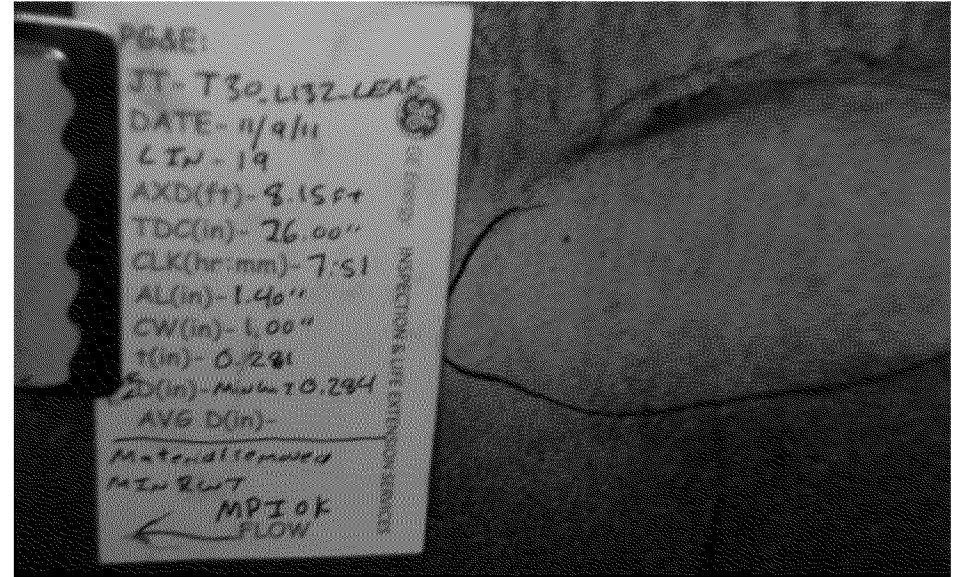 PG&E:
JT- T30_L132_LEAK
DATE- 11/9/11
LIN - 19
AXD(ft)- 8.15 FT
TDC(in)- 26.00"
CLK(hr:mm)- 7:51
AL(in)- 1.40"
CW(in)- 1.00"
t(in)- 0.281
D(in)- 0.284
AVG D(in)-
Material removed
MIN RWT
MPI OK
FLOW
GE Energy INSPECTION & LIFE EXTENSION SERVICES